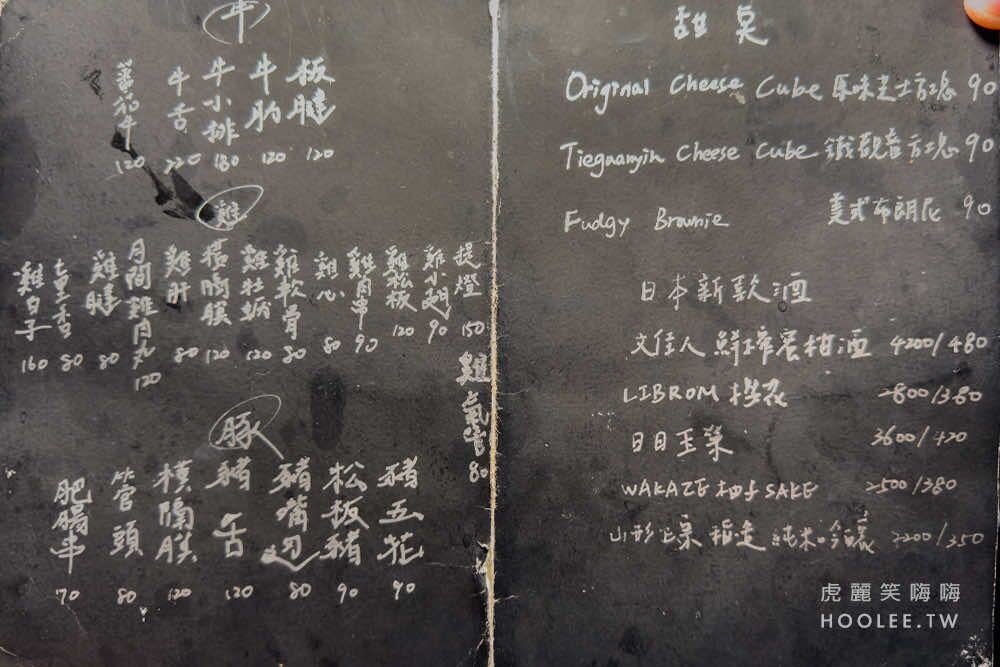 牛
板腱 120
牛肋 120
牛小排 180
牛舌 220
蕃茄牛 120
雞
提燈 150
雞小翅 90
雞松板 120
雞肉串 90
雞心 80
雞軟骨 80
雞牡蠣 120
橫膈膜 120
雞肝 80
月間雞肉丸 120
雞腱 80
七里香 80
雞白子 160
雞氣管 80
豚
豬五花 90
松板豬 90
豬嘴边 80
豬舌 120
橫膈膜 120
管頭 80
肥腸串 70
甜點
Original Cheese Cube 原味起士方塊 90
Tieguanyin Cheese Cube 鐵觀音方塊 90
Fudgy Brownie 美式布朗尼 90
日本新款酒
文佳人 鮮搾蜜柑酒 4200/480
LIBROM 2800/380
3600/420
WAKAZE 柚子SAKE 2500/380
山形 純米吟釀 2200/350
虎麗笑嗨嗨
HOOLEE.TW